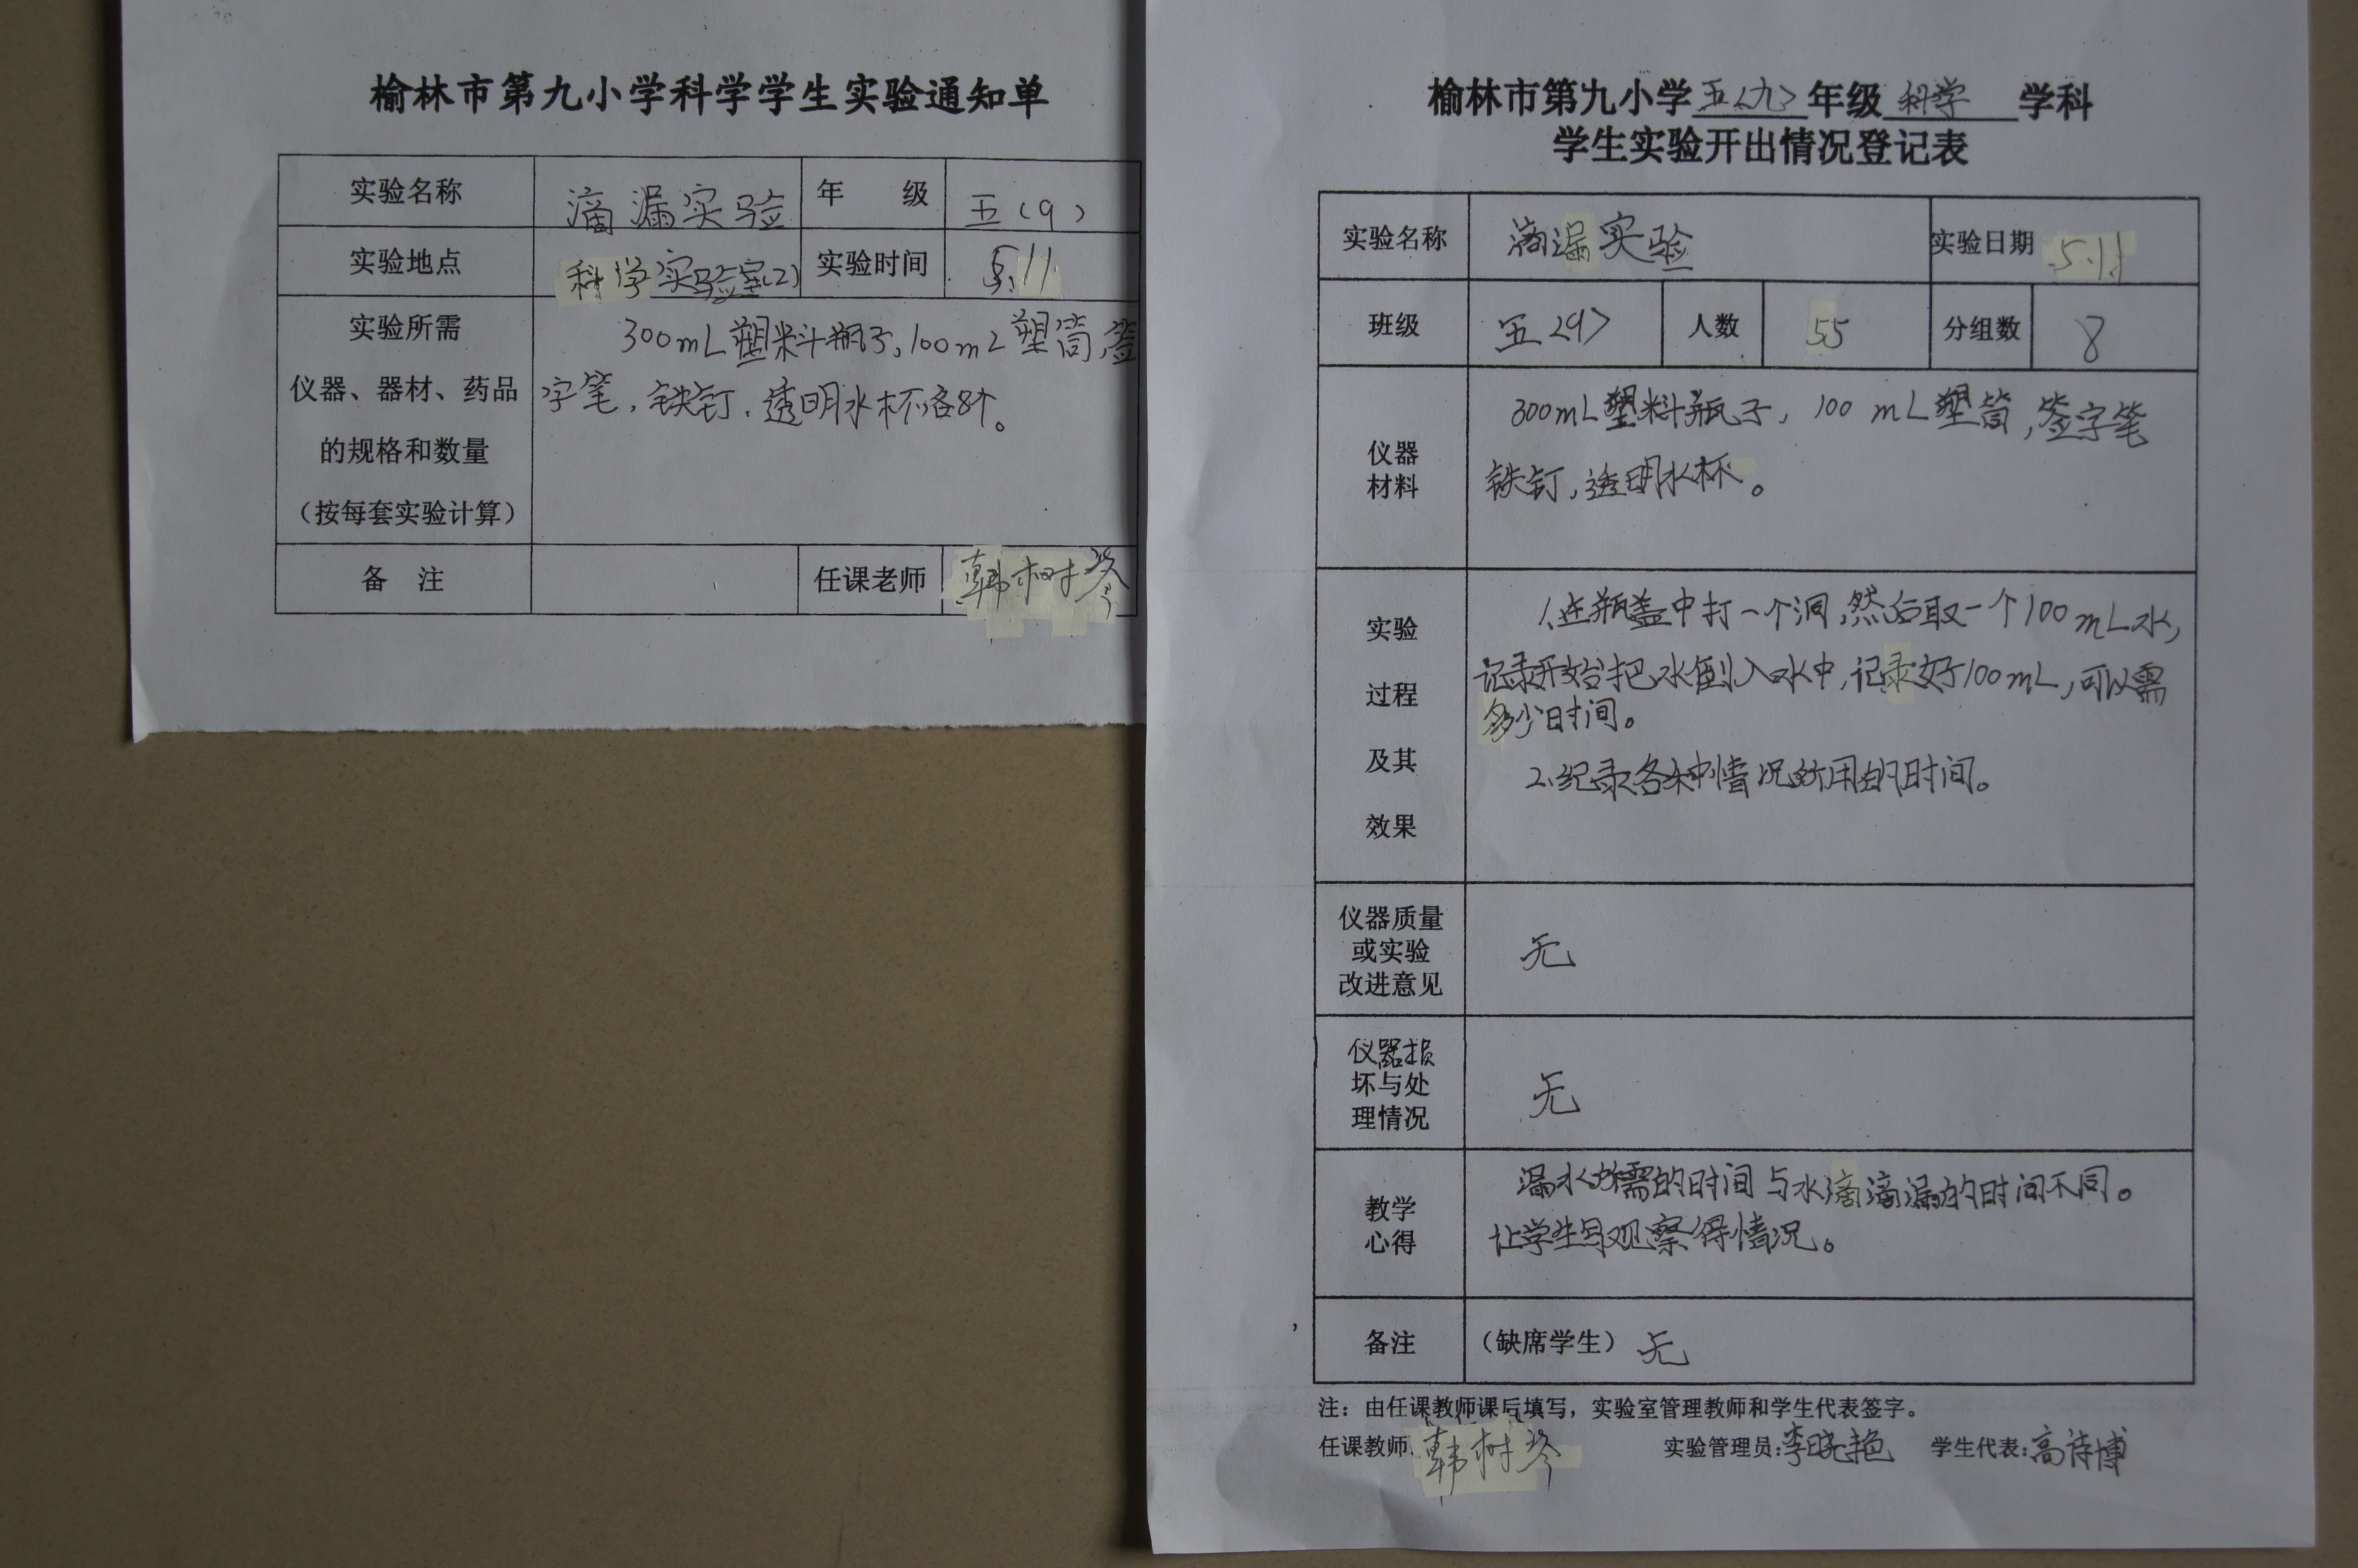 榆林市第九小学科学学生实验通知单
实验名称 滴漏实验 年 级 五(9)
实验地点 科学实验室(2) 实验时间 5.11
实验所需
仪器、器材、药品
的规格和数量
（按每套实验计算）
300mL塑料瓶子,100mL塑筒,签
字笔,铁钉.透明水杯各8个。
备 注 任课老师 韩树琴
榆林市第九小学五<九>年级科学学科
学生实验开出情况登记表
实验名称 滴漏实验 实验日期 5.11
班级 五<9> 人数 55 分组数 8
仪器
材料
300mL塑料瓶子, 100 mL塑筒,签字笔
铁钉,透明水杯。
实验
过程
及其
效果
1.在瓶盖中打一个洞,然后取一个100mL水,
记录开始把水倒入水中,记录好100mL,可以需
多少时间。
2.纪录各种情况所用的时间。
仪器质量
或实验
改进意见
无
仪器损
坏与处
理情况
无
教学
心得
漏水所需的时间与水滴滴漏的时间不同。
让学生观察得情况。
备注 （缺席学生） 无
注：由任课教师课后填写，实验室管理教师和学生代表签字。
任课教师: 韩树琴 实验管理员:李晓艳 学生代表:高诗博